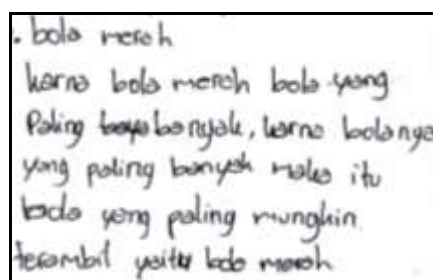 . bola merah
karna bola merah bola yang
Paling banyak, karna bolanya
yang paling banyak maka itu
bola yang paling mungkin
terambil yaitu bola merah